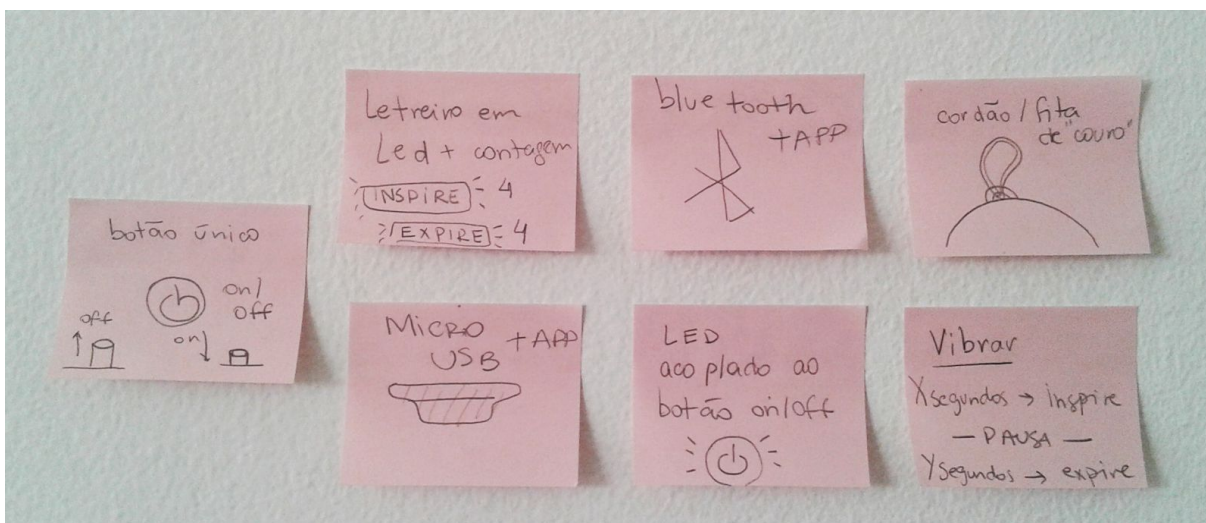 botão único
on/
off
off
on
Letreiro em
Led + contagem
INSPIRE 4
EXPIRE 4
blue tooth
+ APP
cordão / fita
de "couro"
MICRO
USB + APP
LED
acoplado ao
botão on/off
Vibrar
X segundos → inspire
— PAUSA —
Y segundos → expire